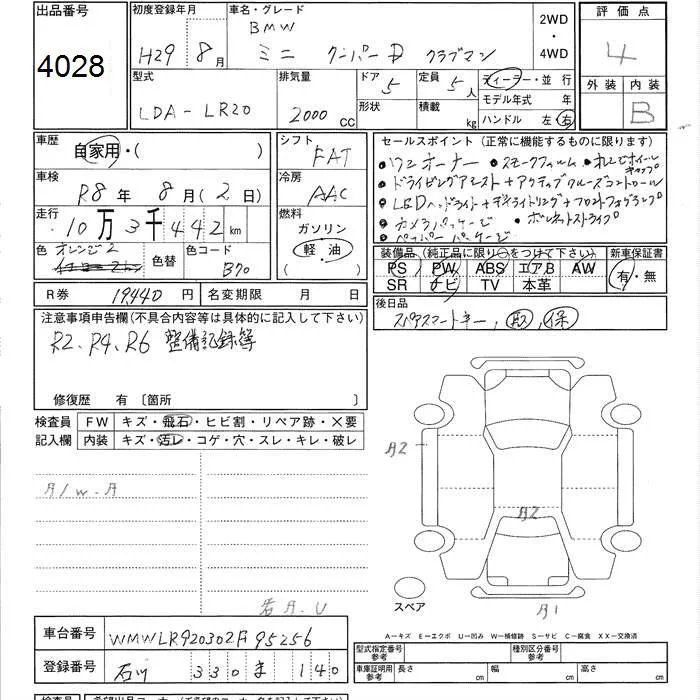 出品番号
4028
初度登録年月
H29 年 8 月
車名・グレード
BMW
ミニ クーパーD クラブマン
2WD
・
4WD
評価点
4
外装 内装
B
型式
LDA-LR20
排気量
2000 CC
ドア 5
形状
定員 5 人
積載 kg
ディーラー・並行
モデル年式 年
ハンドル 左 右
車歴
自家用・( )
車検
R8 年 8 月 ( 2 日)
走行
10 万 3 千 442 km
色 オレンジ2
色替
色コード
B70
シフト
FAT
冷房
AAC
燃料
ガソリン
軽・油
( )
セールスポイント(正常に機能するものに限ります)
・ワンオーナー ・スモークフィルム ・オレンジホイールキャップ
・ドライビングアシスト+アクティブクルーズコントロール
・LEDヘッドライト+デイライトリング+フロントフォグランプ
・カメラパッケージ ・ボンネットストライプ
・ペッパーパッケージ
装備品(純正品に限り○をつけて下さい)
PS PW ABS エアB AW
SR ナビ TV 本革
新車保証書
有・無
R券 19440 円
名変期限 月 日
後日品
スペアスマートキー, 取, 保
注意事項申告欄(不具合内容等は具体的に記入して下さい)
R2、R4、R6 整備記録簿
修復歴 有 〔箇所 〕
検査員
記入欄
FW キズ・飛石・ヒビ割・リペア跡・X要
内装 キズ・汚レ・コゲ・穴・スレ・キレ・破レ
A/W.A
若A.U
A2
A2
A1
スペア
A-キズ E-エクボ U-凹み W-補修跡 S-サビ C-腐食 XX-交換済
車台番号 WMWLR920302F95256
登録番号 石川 330 ま 140
型式指定番号
参考
種別区分番号
参考
車庫証明用
参考
長さ cm 幅 cm 高さ cm